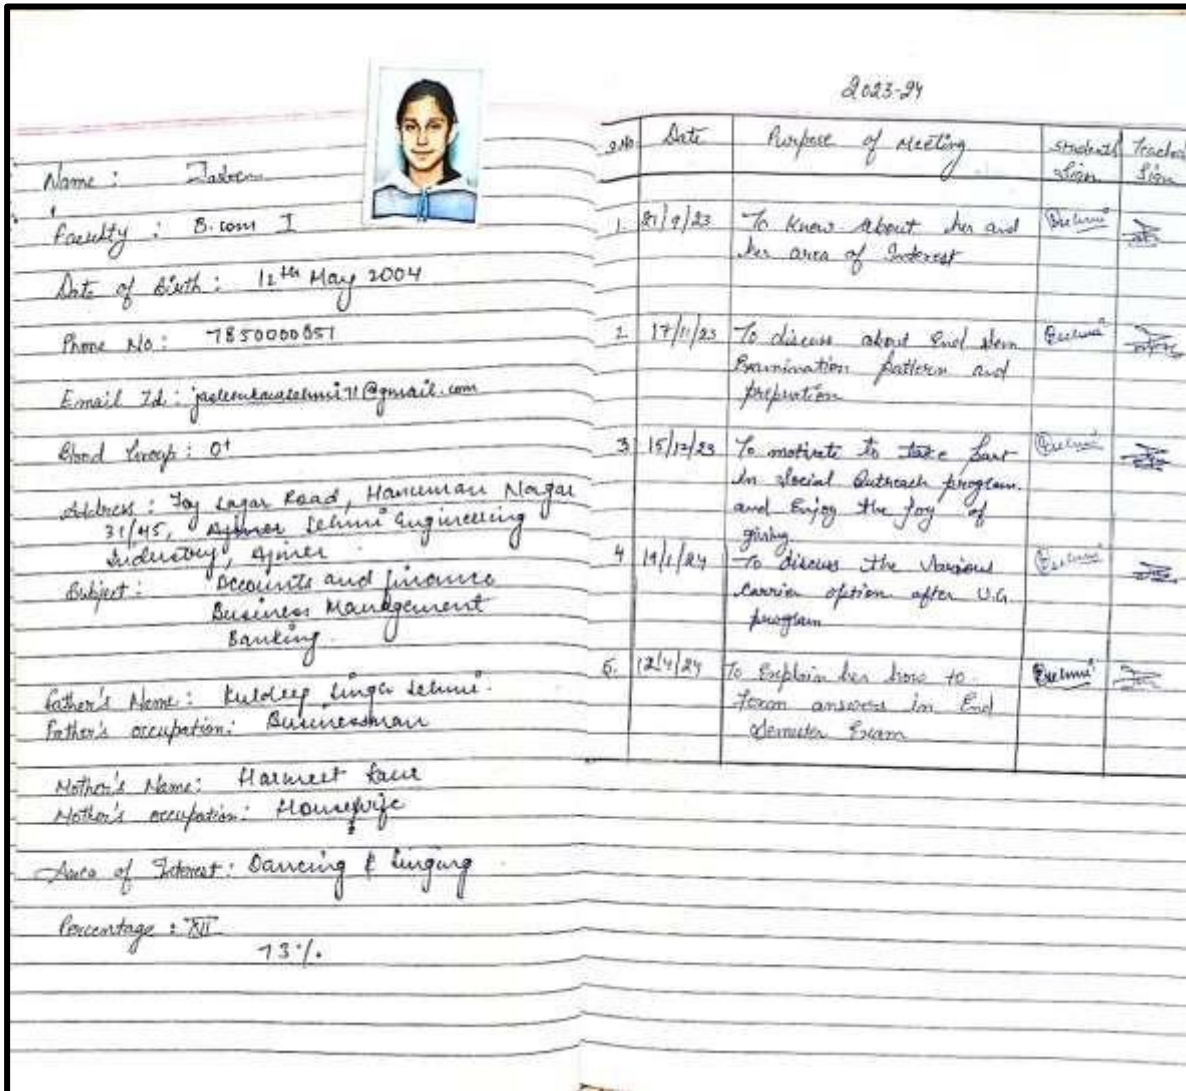 Name :
Faculty : B.com I
Date of Birth : 12th May 2004
Phone No : 7850000851
Email Id : jasleenkauresehmi71@gmail.com
Blood Group : O+
Address : Foy Sagar Road, Hanuman Nagar
31/45, Sehmi Engineering
Industry, Ajmer
Subject : Accounts and finance
Business Management
Banking.
Father's Name : Kuldeep Singh Sehmi.
Father's occupation : Businessman
Mother's Name : Harmeet Kaur
Mother's occupation : Housewife
Area of Interest : Dancing & Singing
Percentage : XII
73%.
2023-24
S.No Date Purpose of Meeting Students Sign Teacher Sign
1. 21/9/23 To Know about her and
her area of Interest
2. 17/11/23 To discuss about End Sem
Examination pattern and
prepration
3. 15/12/23 To motivate to take part
in Social Outreach program.
and Enjoy the Joy of
giving.
4. 19/1/24 To discuss the Various
Carrier option after U.G.
program
5. 12/4/24 To Explain her how to
form answers in End
Semester Exam